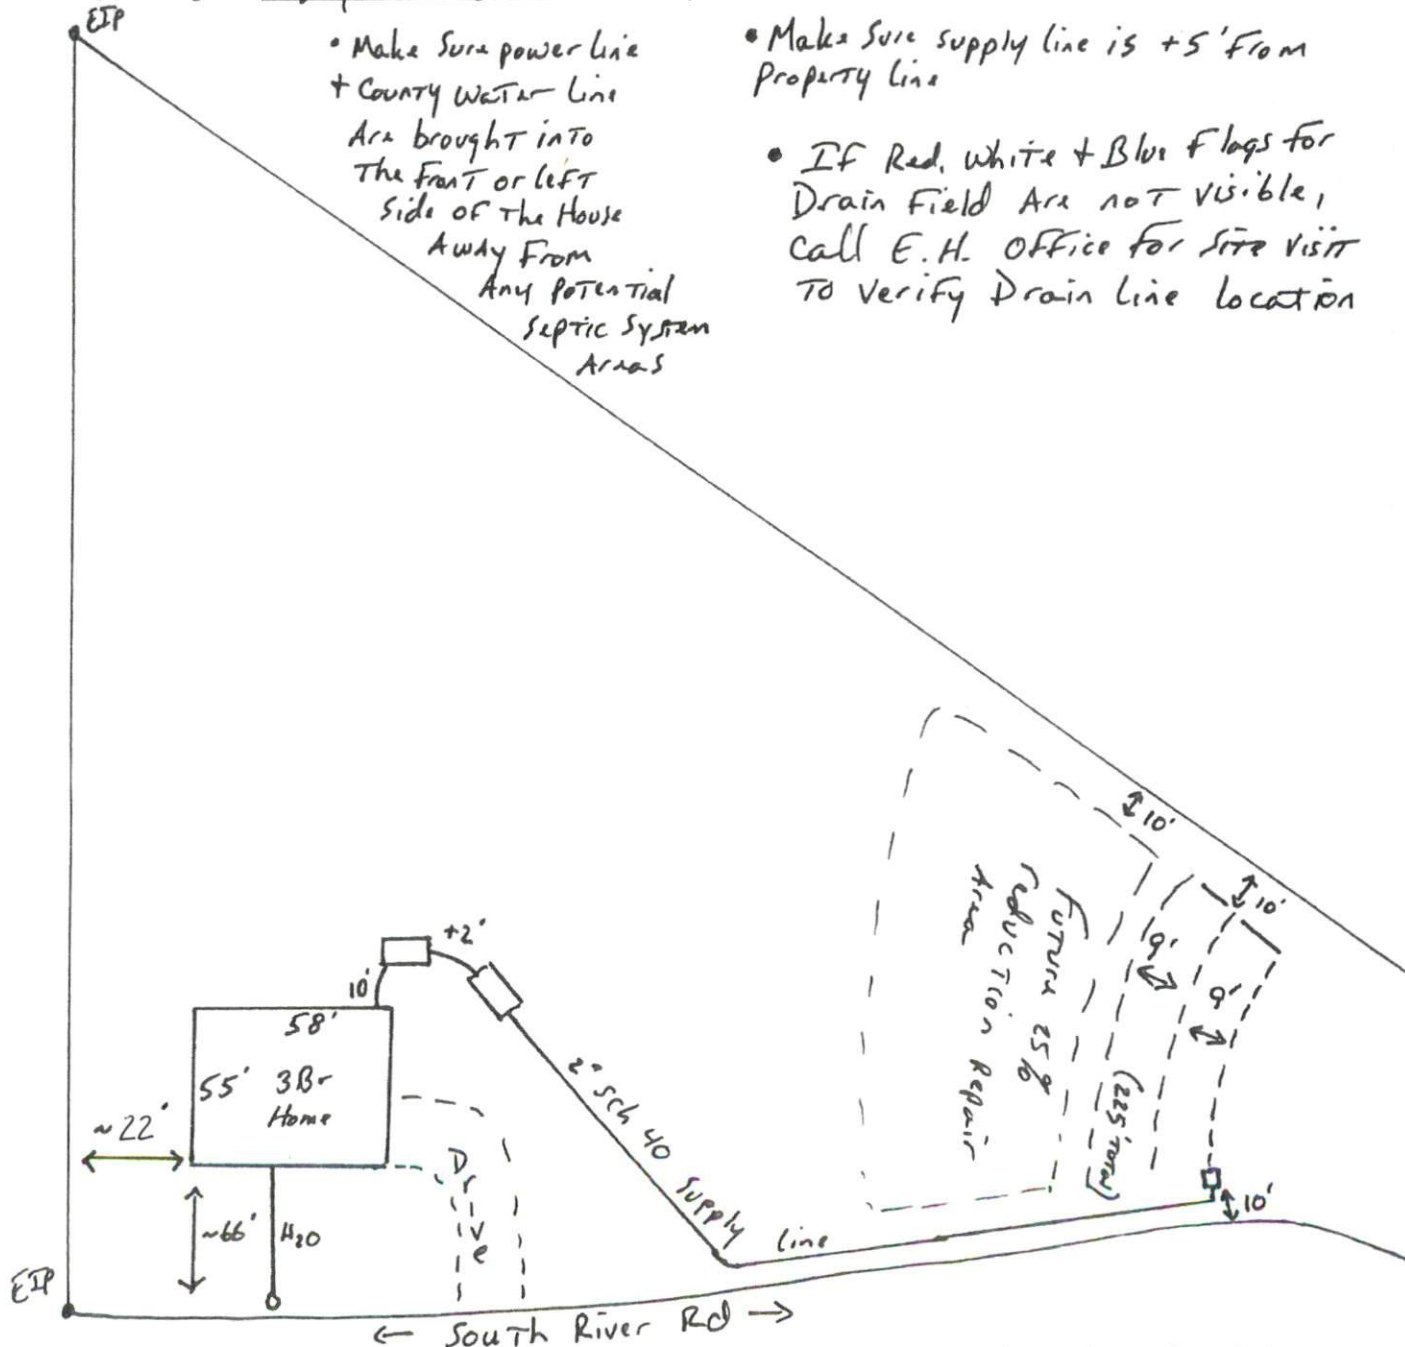 EIP
• Make Sure power line
+ County Water Line
Are brought into
The Front or left
Side of The House
Away From
Any Potential
Septic System
Areas
• Make Sure supply line is +5' From
Property Line
• If Red, White + Blue Flags for
Drain Field Are not visible,
Call E.H. Office for Site visit
To Verify Drain Line Location
10'
10'
9'
9'
Future 25%
reduction Repair
Area
(225' Total)
+2'
10'
58'
55' 3Br
Home
~22'
~66'
H2O
Drive
2" Sch 40 Supply line
10'
EIP
← South River Rd →